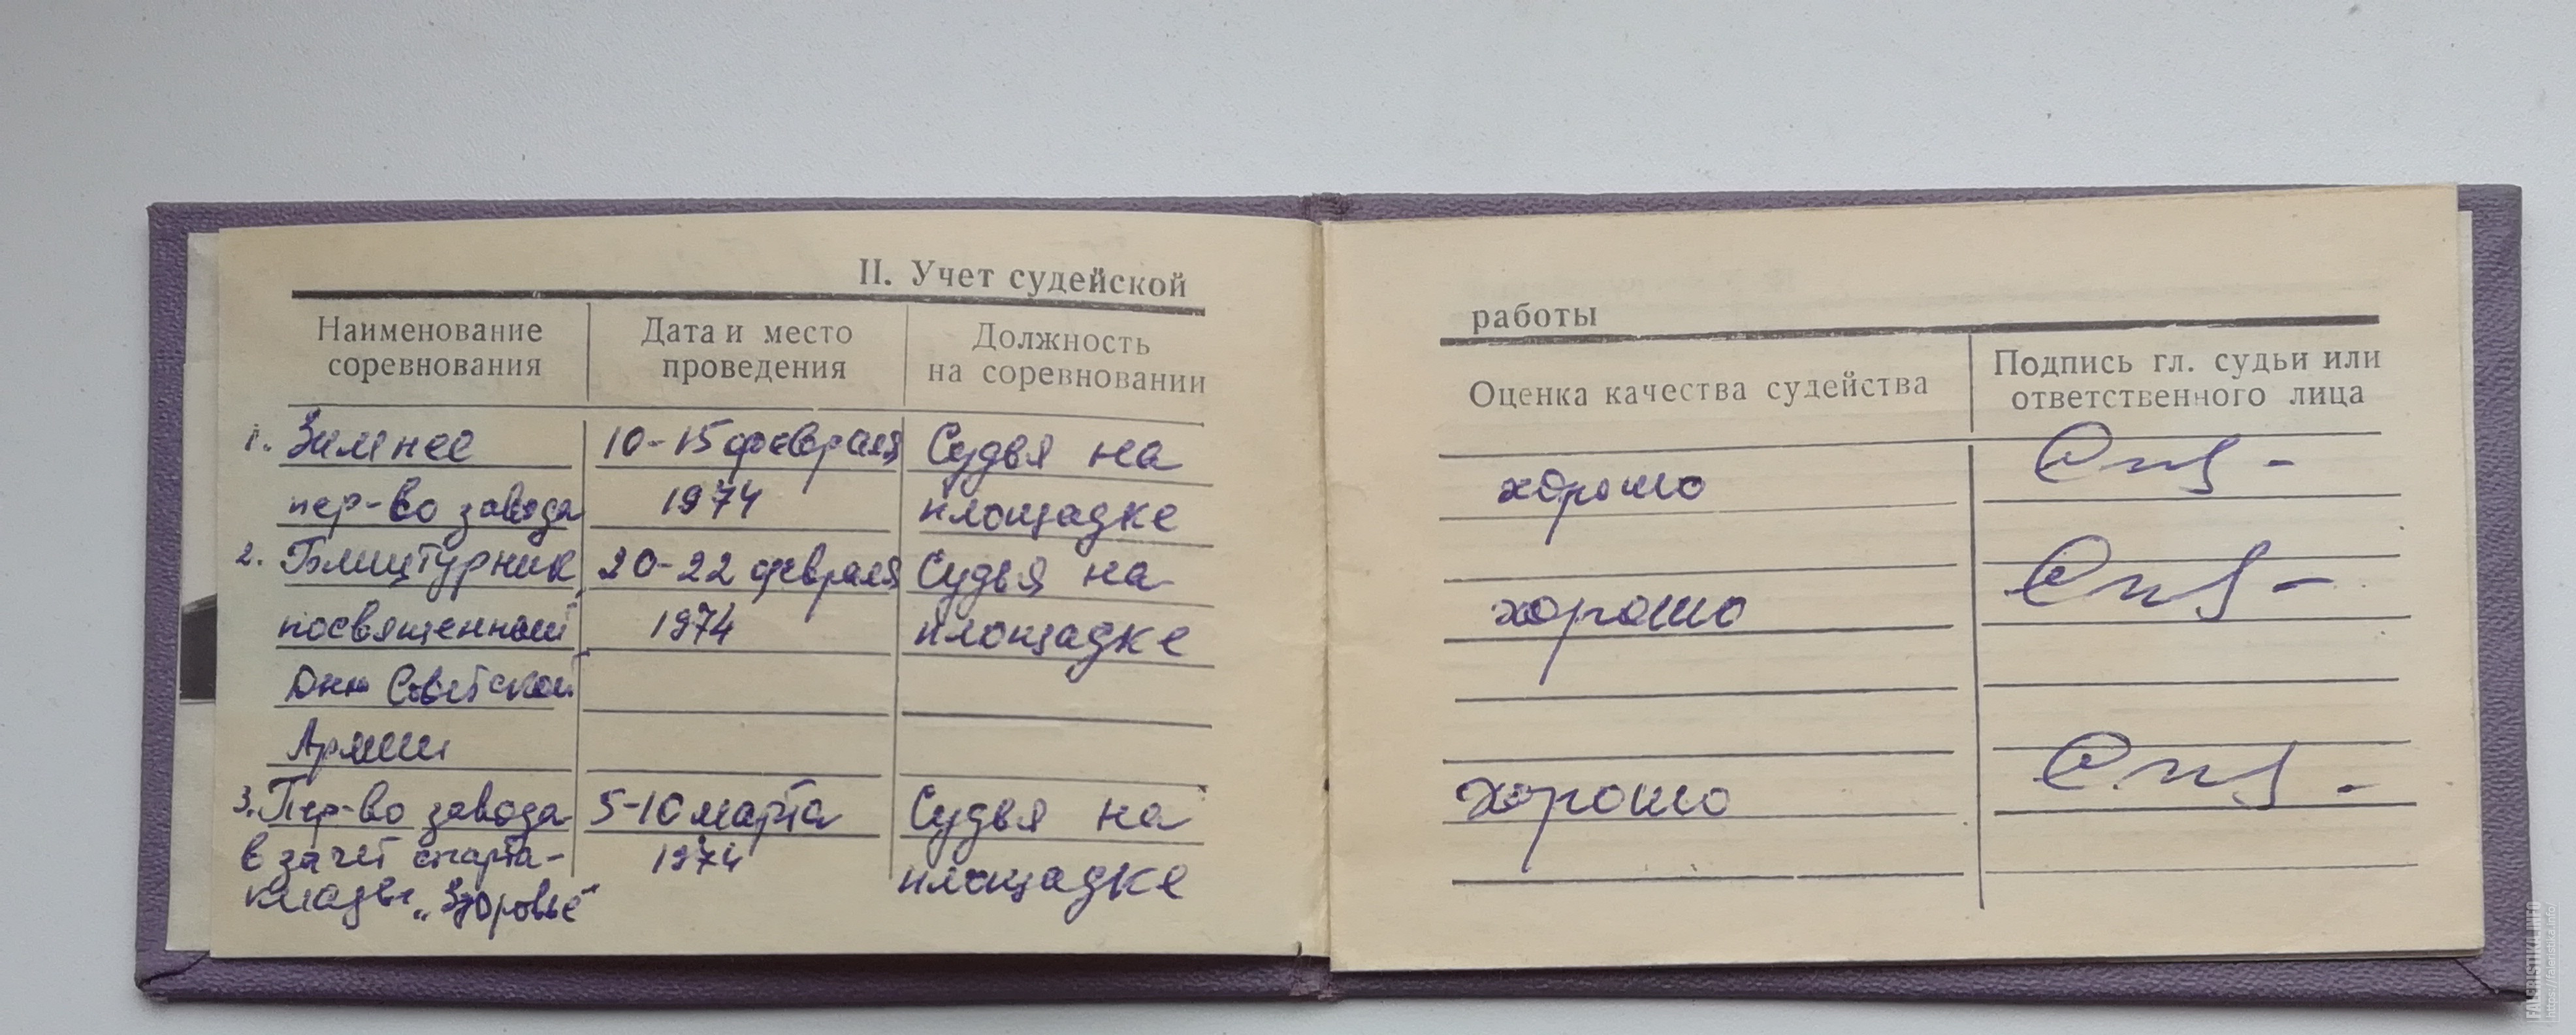 II. Учет судейской
Наименование соревнования
Дата и место проведения
Должность на соревновании
1. Зимнее 10-15 февраля Судья на
пер-во завода 1974 площадке
2. Блицтурнир 20-22 февраля Судья на
посвященный 1974 площадке
Дню Советской
Армии
3. Пер-во завода 5-10 марта Судья на
в зачет спарта- 1974 площадке
киады „Здоровье"
работы
Оценка качества судейства
Подпись гл. судьи или ответственного лица
хорошо
хорошо
хорошо
FALERISTIKA.INFO
https://faleristika.info/